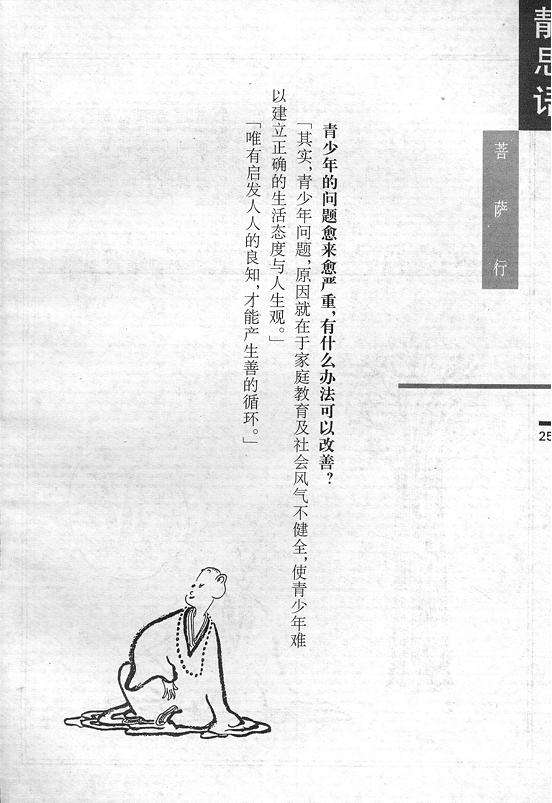 静思语
菩萨行
青少年的问题愈来愈严重，有什么办法可以改善？
「其实，青少年问题，原因就在于家庭教育及社会风气不健全，使青少年难
以建立正确的生活态度与人生观。」
「唯有启发人人的良知，才能产生善的循环。」